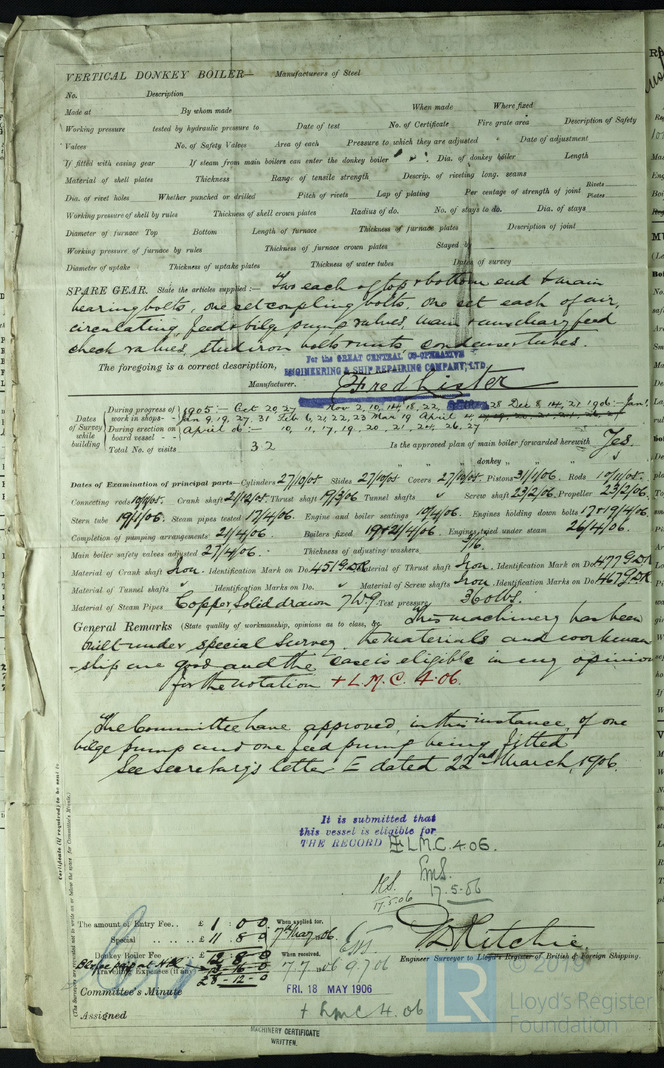 VERTICAL DONKEY BOILER— Manufacturers of Steel
No. Description
Made at By whom made When made Where fixed
Working pressure tested by hydraulic pressure to Date of test No. of Certificate Fire grate area Description of Safety
Valves No. of Safety Valves Area of each Pressure to which they are adjusted Date of adjustment
If fitted with easing gear If steam from main boilers can enter the donkey boiler Dia. of donkey boiler Length
Material of shell plates Thickness Range of tensile strength Descrip. of riveting long. seams
Dia. of rivet holes Whether punched or drilled Pitch of rivets Lap of plating Per centage of strength of joint Rivets Plates
Working pressure of shell by rules Thickness of shell crown plates Radius of do. No. of stays to do. Dia. of stays
Diameter of furnace Top Bottom Length of furnace Thickness of furnace plates Description of joint
Working pressure of furnace by rules Thickness of furnace crown plates Stayed by
Diameter of uptake Thickness of uptake plates Thickness of water tubes Dates of survey
SPARE GEAR. State the articles supplied:— Two each of top & bottom end & main
bearing bolts, one set coupling bolts, one set each of air,
circulating feed & bilge pump valves, main & auxiliary feed
check valves, studs iron bolts & nuts condenser tubes.
The foregoing is a correct description, For the GREAT CENTRAL CO-OPERATIVE
ENGINEERING & SHIP REPAIRING COMPANY, LTD.
Manufacturer. Fred Lister
Dates of Survey while building
During progress of work in shops-- 1905:- Oct 20. 27. Nov 2, 10, 14, 18, 22, 28 Dec 8, 14, 21 1906:- Jan
Jan 9, 19, 27, 31 Feb 6, 21, 22, 23 Mar 19 April 4
During erection on board vessel--- April 6:- 10, 11, 17, 19, 20, 21, 24, 26, 27
Total No. of visits 32 Is the approved plan of main boiler forwarded herewith Yes.
" " " donkey " " "
Dates of Examination of principal parts—Cylinders 27/10/05 Slides 27/10/05 Covers 27/10/05 Pistons 31/1/06. Rods 10/11/05.
Connecting rods 10/11/05. Crank shaft 21/12/05 Thrust shaft 19/3/06 Tunnel shafts " Screw shaft 23/2/06. Propeller 23/2/06.
Stern tube 19/1/06. Steam pipes tested 17/4/06. Engine and boiler seatings 10/4/06. Engines holding down bolts 17 & 19/4/06.
Completion of pumping arrangements 21/4/06. Boilers fixed 19 & 21/4/06. Engines tried under steam 26/4/06.
Main boiler safety valves adjusted 27/4/06. Thickness of adjusting washers 3/16.
Material of Crank shaft Iron. Identification Mark on Do. 451 G.D.R. Material of Thrust shaft Iron. Identification Mark on Do. 477 G.D.R.
Material of Tunnel shafts " Identification Marks on Do. " Material of Screw shafts Iron. Identification Marks on Do. 467 G.D.R.
Material of Steam Pipes Copper solid drawn 7 W.G. Test pressure 360 lbs.
General Remarks (State quality of workmanship, opinions as to class, &c. This machinery has been
built under special survey. The materials and workman
-ship are good and the case is eligible in my opinion
for the notation + L.M.C. 4.06.
The Committee have approved, in this instance, of one
bilge pump and one feed pump being fitted
See Secretary's letter E dated 22nd March, 1906.
Certificate (if required) to be sent to
(The Surveyors are requested not to write on or below the space for Committee's Minute.)
It is submitted that
this vessel is eligible for
THE RECORD + L.M.C. 4.06.
17.5.06
17.5.06
The amount of Entry Fee.. £ 1 : 0 : 0 When applied for,
Special .. .. £ 11 : 8 : 0 7th May 06.
Donkey Boiler Fee .. £ 12 : 8 : 0 When received,
Travelling Expenses (if any) £ 16 - 0
28 - 12 - 0
Engineer Surveyor to Lloyd's Register of British & Foreign Shipping.
D Ritchie
Committee's Minute FRI. 18 MAY 1906
Assigned + LMC 4.06
MACHINERY CERTIFICATE
WRITTEN.
© 2019
LR
Lloyd's Register
Foundation